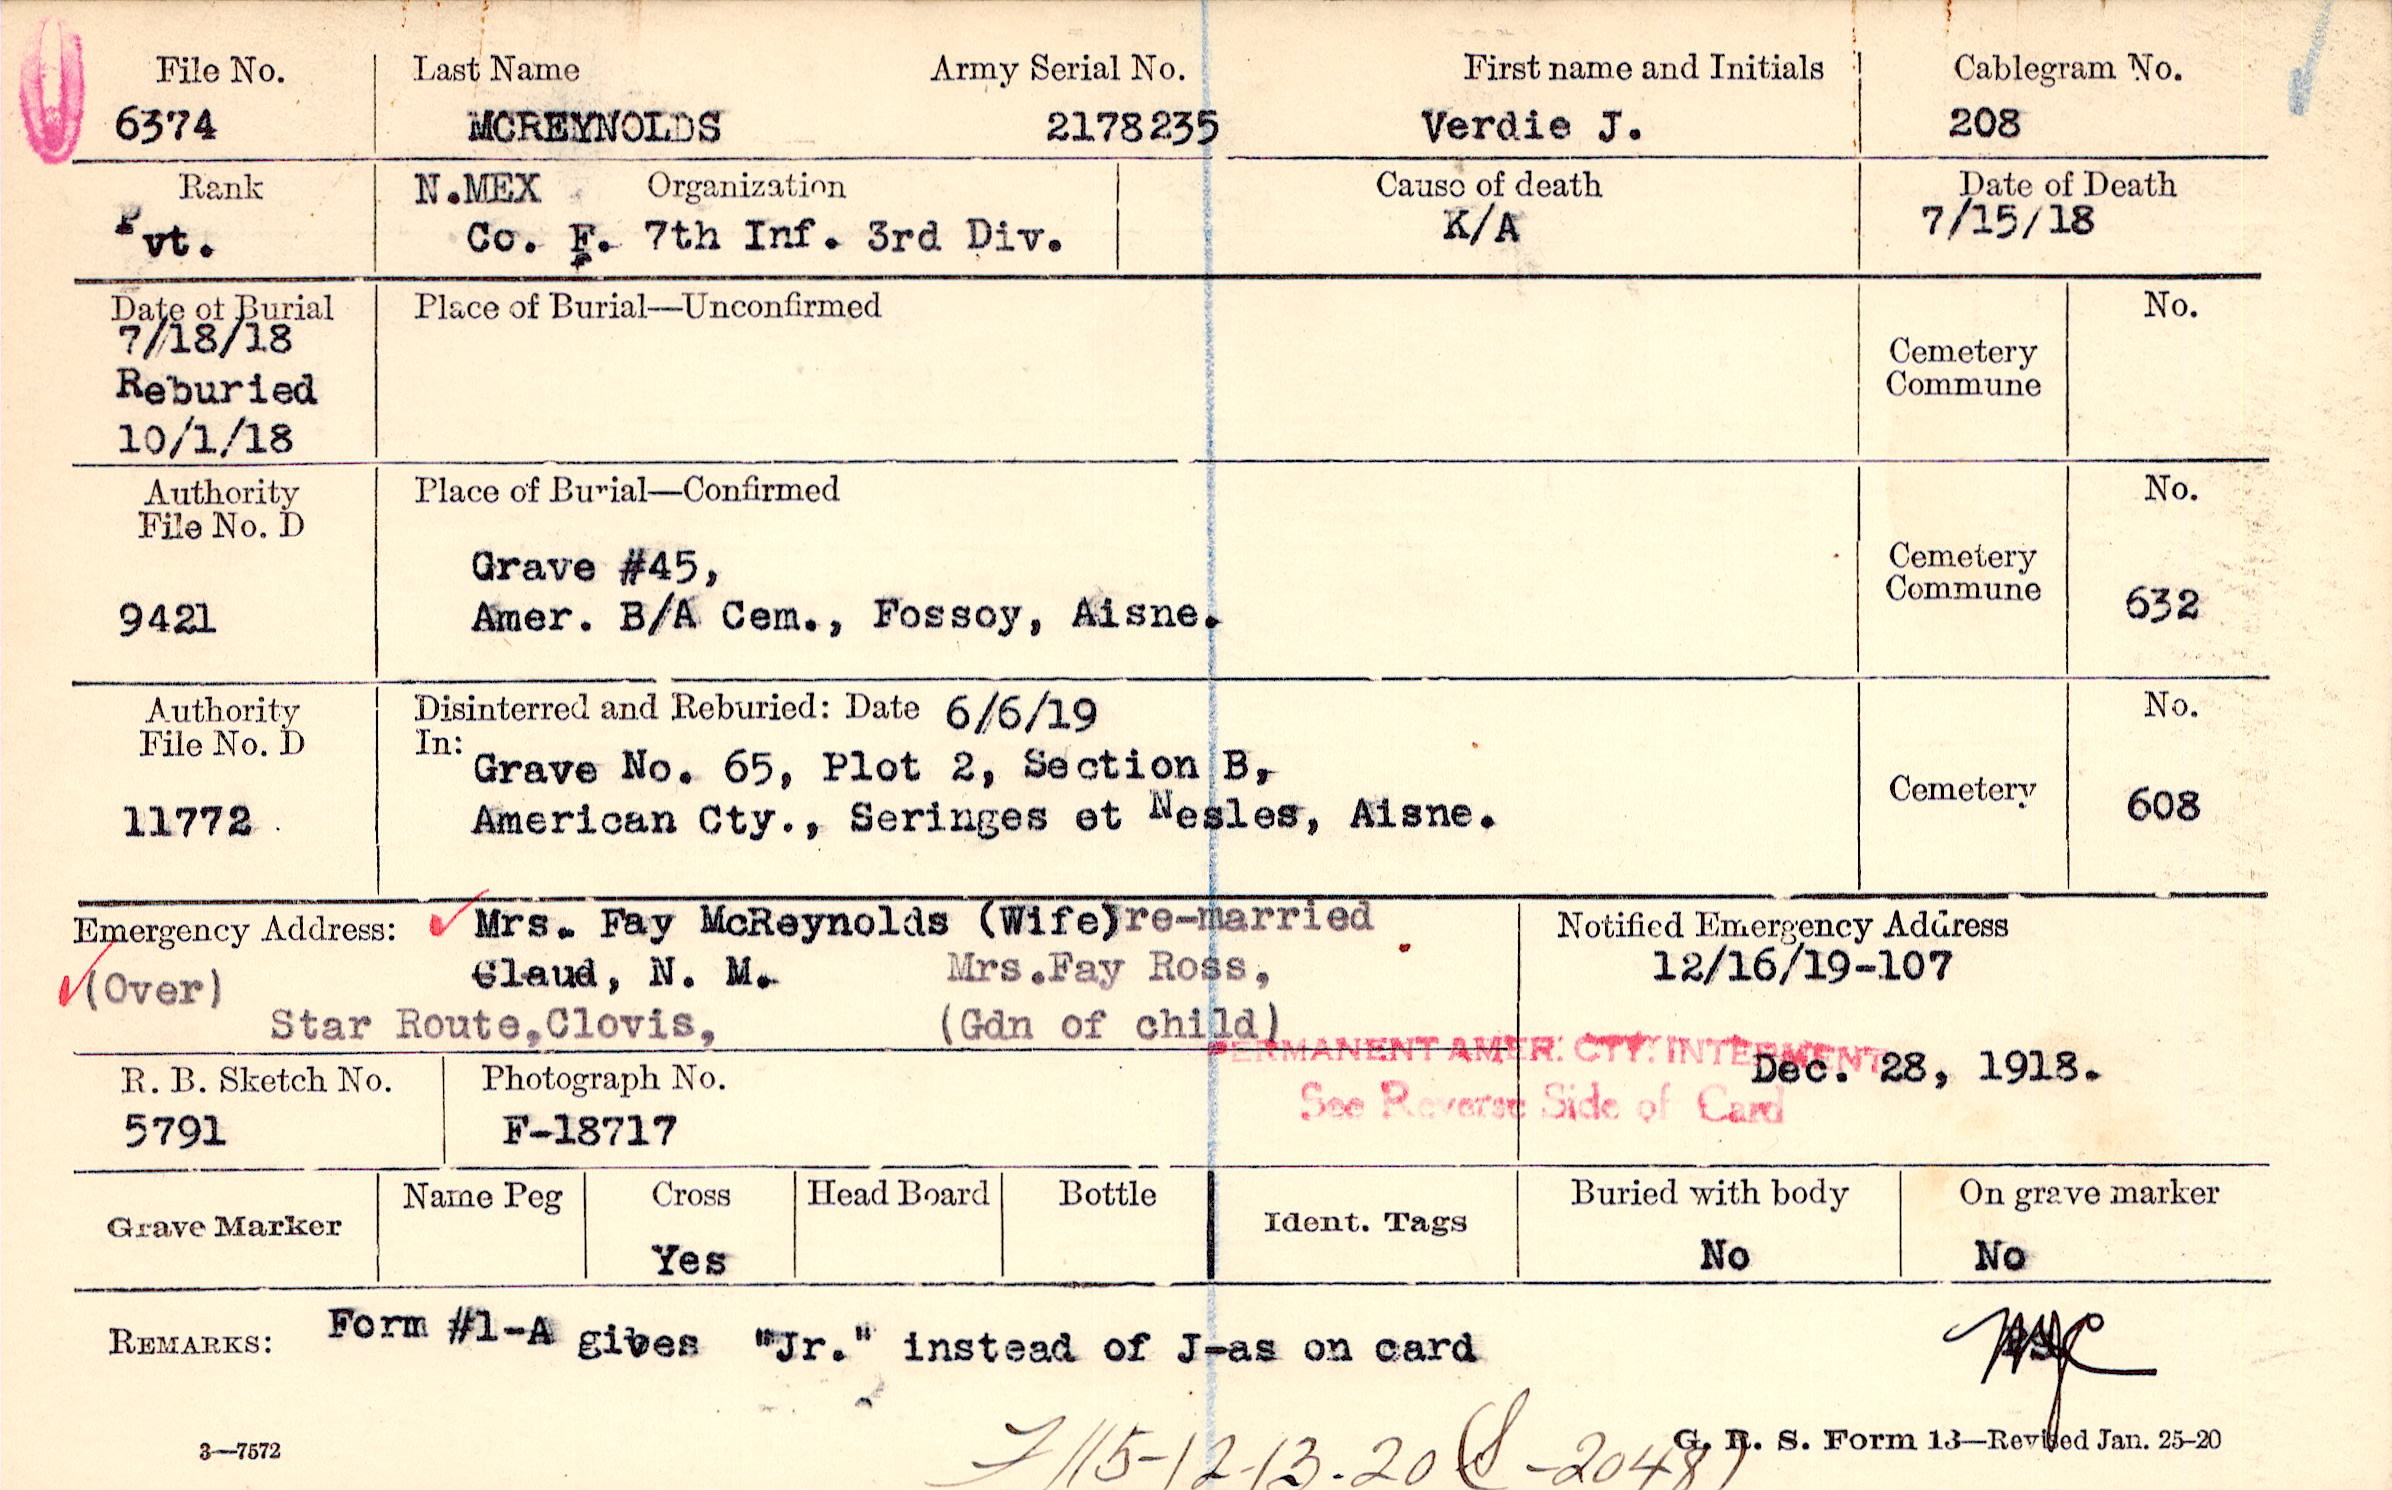 File No. Last Name Army Serial No. First name and Initials Cablegram No.
6374 MCREYNOLDS 2178235 Verdie J. 208
Rank N.MEX Organization Cause of death Date of Death
Pvt. Co. F. 7th Inf. 3rd Div. K/A 7/15/18
Date of Burial Place of Burial—Unconfirmed No.
7/18/18
Cemetery
Commune
Reburied
10/1/18
Authority Place of Burial—Confirmed No.
File No. D
Grave #45, Cemetery
Commune
9421 Amer. B/A Cem., Fossoy, Aisne. 632
Authority Disinterred and Reburied: Date 6/6/19 No.
File No. D In:
Grave No. 65, Plot 2, Section B,
Cemetery
11772 American Cty., Seringes et Nesles, Aisne. 608
Emergency Address: Mrs. Fay McReynolds (Wife)re-married Notified Emergency Address
(Over) Claud, N. M. Mrs.Fay Ross, 12/16/19-107
Star Route,Clovis, (Gdn of child)
PERMANENT AMER. CTY. INTERMENT
Dec. 28, 1918.
See Reverse Side of Card
R. B. Sketch No. Photograph No.
5791 F-18717
Grave Marker Name Peg Cross Head Board Bottle Ident. Tags Buried with body On grave marker
Yes No No
REMARKS: Form #1-A gives "Jr." instead of J-as on card
3—7572 G. R. S. Form 13—Revised Jan. 25-20